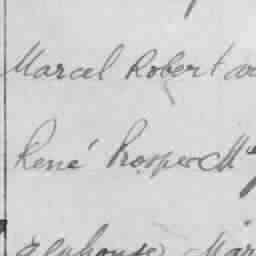 Marcel Robert
René Prosper M
Alphonse Mar